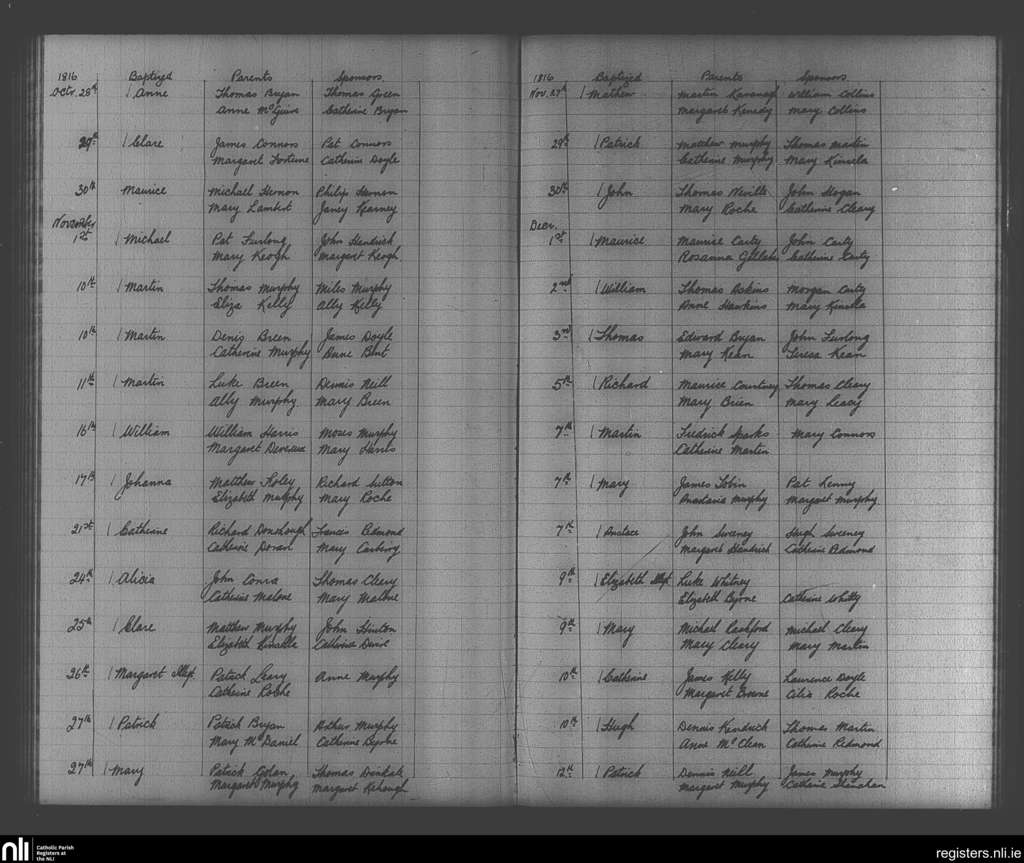 1816 Baptized Parents Sponsors
Octr. 28th Anne Thomas Bryan Thomas Green
Anne McGuire Catherine Bryan
29th Clare James Connors Pat Connors
Margaret Fortune Catherine Doyle
30th Maurice Michael Hernon Philip Hernon
Mary Lambert Janey Kearney
November
1st Michael Pat Furlong John Hendrick
Mary Keogh Margaret Keogh
10th Martin Thomas Murphy Miles Murphy
Eliza Kelly Ally Kelly
10th Martin Denis Breen James Doyle
Catherine Murphy Anne Bent
11th Martin Luke Breen Dennis Neill
Ally Murphy Mary Breen
16th William William Harris Moses Murphy
Margaret Devereux Mary Harris
17th Johanna Matthew Foley Richard Sutton
Elizabeth Murphy Mary Roche
21st Catherine Richard Francis Redmond
Catherine Doran Mary
24th Alicia John Conra Thomas Cleary
Catherine Malone Mary Malone
25th Clare Matthew Murphy John Hinton
Elizabeth Catherine
26th Margaret Illegt. Patrick Leary Anne Murphy
Catherine Roche
27th Patrick Patrick Bryan Arthur Murphy
Mary McDaniel Catherine Byrne
27th Mary Patrick Thomas
Margaret Murphy Margaret Kehough
1816 Baptized Parents Sponsors
Nov. 27th Mathew Martin Kavanagh William Collins
Margaret Kenedy Mary Collins
29th Patrick Matthew Murphy Thomas Martin
Catherine Murphy Mary Kinsela
30th John Thomas Neville John Hogan
Mary Roche Catherine Cleary
Decr.
1st Maurice Maurice Carty John Carty
Rosanna Catherine Carty
2nd William Thomas Askins Morgan Carty
Anne Hawkins Mary Kinsella
3rd Thomas Edward Bryan John Furlong
Mary Kean Teresa Kean
5th Richard Maurice Courtney Thomas Cleary
Mary Brien Mary Leacy
7th Martin Fredrick Sparks Mary Connors
Catherine Martin
7th Mary James Tobin Pat Kenny
Anastasia Murphy Margaret Murphy
7th Anstace John Sweeney Hugh Sweeney
Margaret Hendrick Catherine Redmond
9th Elizabeth Illegt. Luke Whitney
Elizabeth Byrne Catherine Whitty
9th Mary Michael Michael Cleary
Mary Cleary Mary Martin
10th Catherine James Kelly Laurence Doyle
Margaret Browne Celia Roche
10th Hugh Dennis Kendrick Thomas Martin
Anne McClean Catherine Redmond
12th Patrick Dennis Neill James Murphy
Margaret Murphy Catherine
nli Catholic Parish
Registers at
the NLI
registers.nli.ie